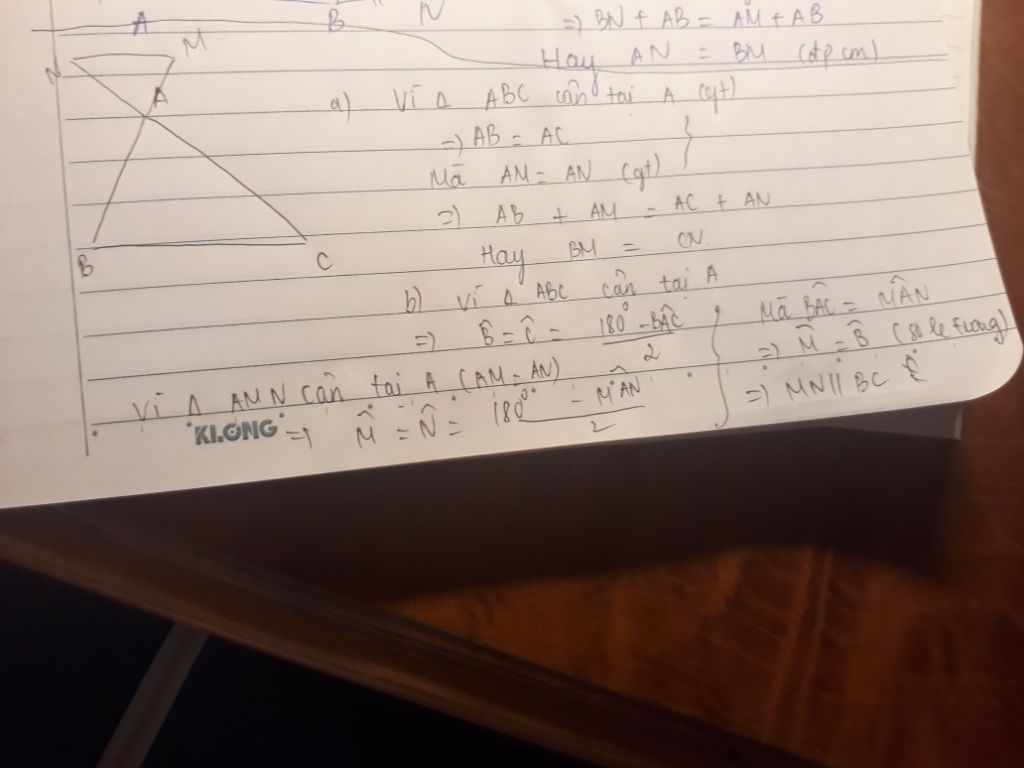 A B N
=) BN + AB = AM + AB
Hay AN = BM (đpcm)
N M
A
B C
a) Vì Δ ABC cân tại A (gt)
=) AB = AC
Mà AM = AN (gt)
=) AB + AM = AC + AN
Hay BM = CN
b) Vì Δ ABC cân tại A
=) B̂ = Ĉ = (180° - BÂC)/2
Vì Δ AMN cân tại A (AM = AN)
=) M̂ = N̂ = (180° - MÂN)/2
Mà BÂC = MÂN
=) M̂ = B̂ (so le trong)
=) MN // BC
KLONG